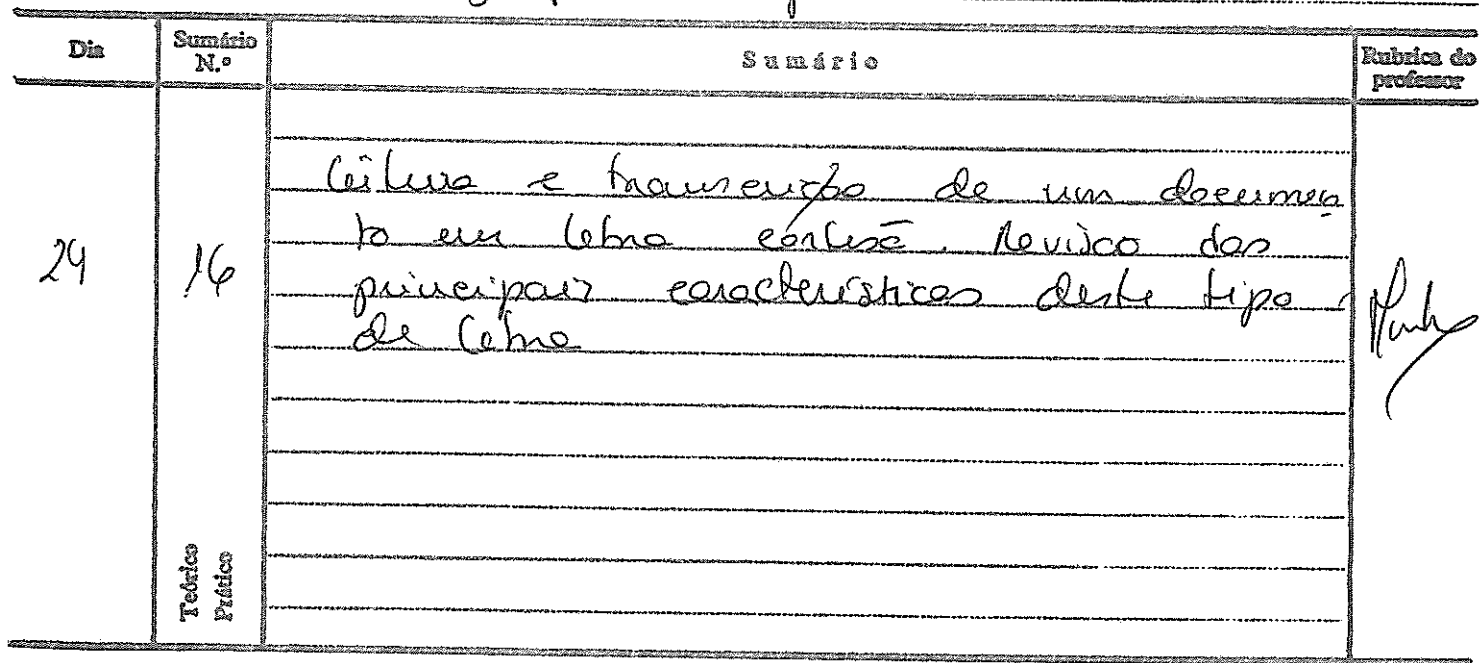 Dia
Sumário N.º
Sumário
Rubrica do professor
24
16
Leitura e transcrição de um documen
to em letra cortesã. Revisão das
principais características deste tipo
de letra
Teórico
Prático